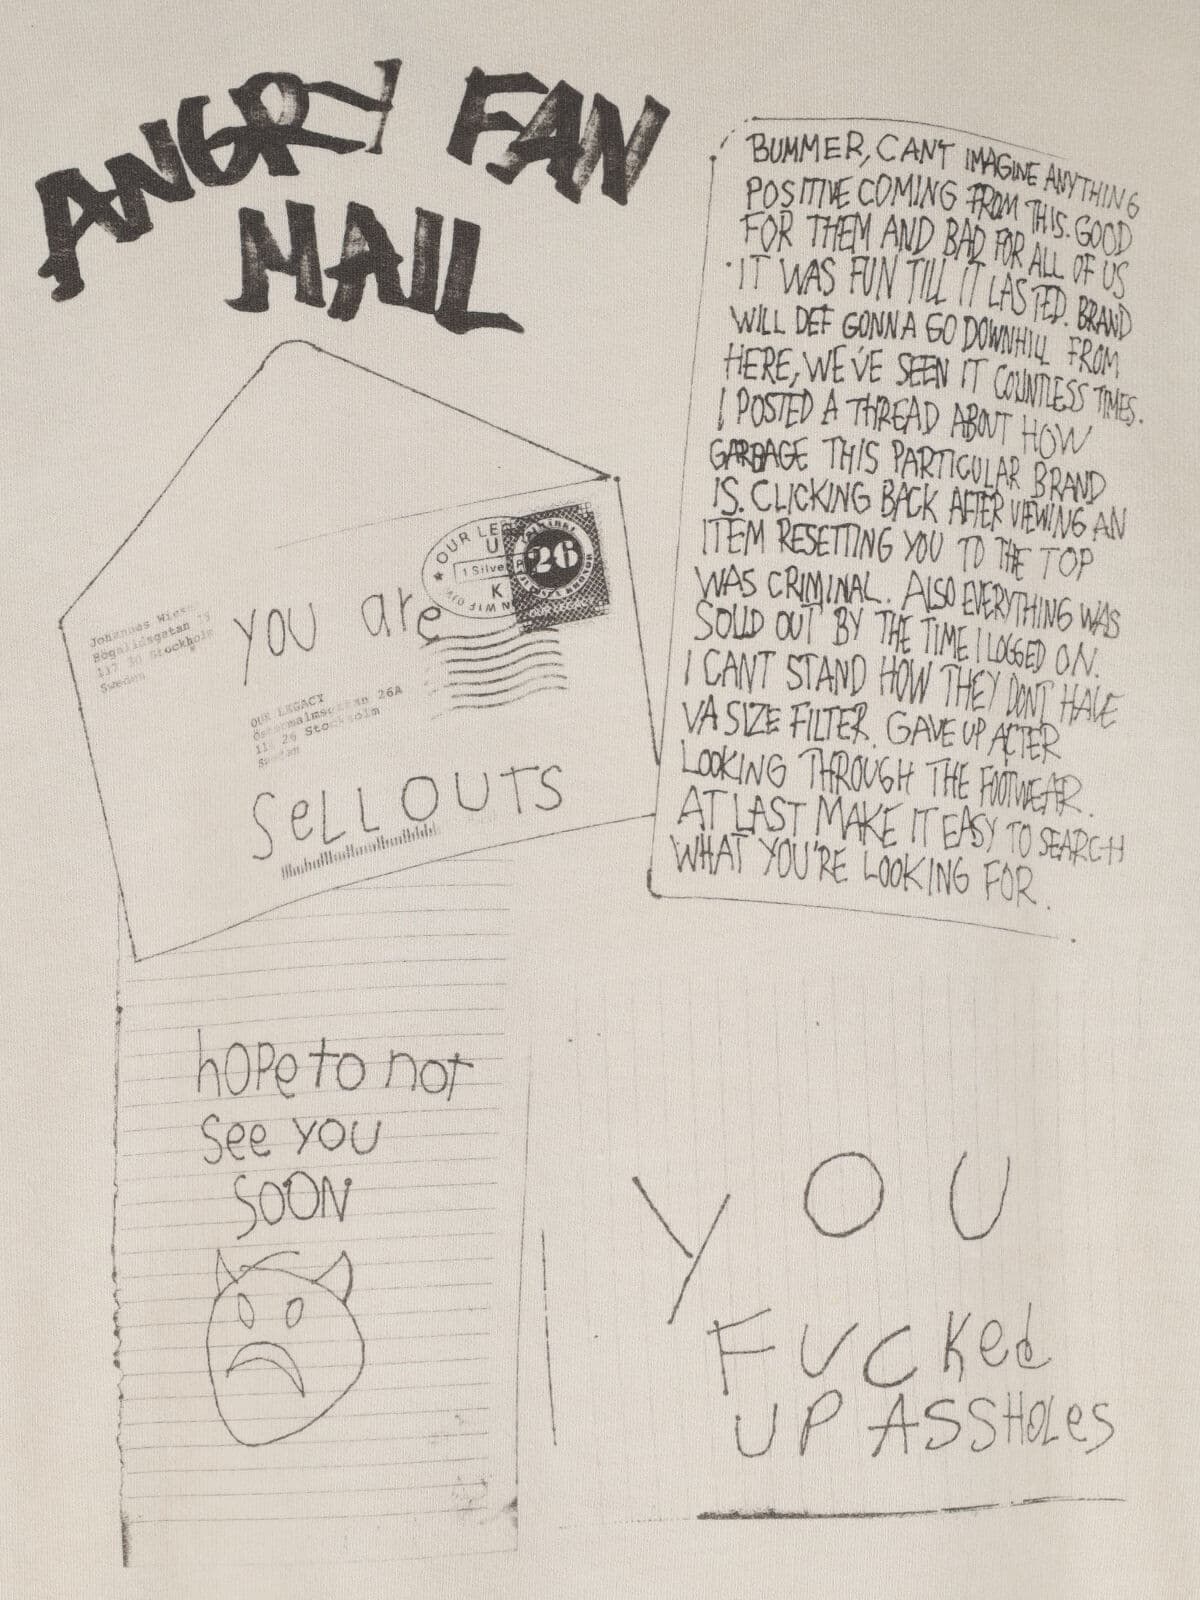 ANGRY FAN
MAIL
BUMMER, CANT IMAGINE ANYTHING
POSITIVE COMING FROM THIS. GOOD
FOR THEM AND BAD FOR ALL OF US
IT WAS FUN TILL IT LASTED. BRAND
WILL DEF GONNA GO DOWNHILL FROM
HERE, WE'VE SEEN IT COUNTLESS TIMES.
I POSTED A THREAD ABOUT HOW
GARBAGE THIS PARTICULAR BRAND
IS. CLICKING BACK AFTER VIEWING AN
ITEM RESETTING YOU TO THE TOP
WAS CRIMINAL. ALSO EVERYTHING WAS
SOLD OUT BY THE TIME I LOGGED ON.
I CANT STAND HOW THEY DONT HAVE
VA SIZE FILTER. GAVE UP AFTER
LOOKING THROUGH THE FOOTWEAR.
AT LAST MAKE IT EASY TO SEARCH
WHAT YOU'RE LOOKING FOR.
OUR LE
U
1 Silve
K
26
Johannes
Högalidsgatan
117 30 Stockholm
Sweden
you are
OUR LEGACY
Östermalmsgatan 26A
114 26 Stockholm
Sweden
SeLLOUTS
hOPe to not
See YOU
SOON
YOU
FUCKed
UP ASSHOLes